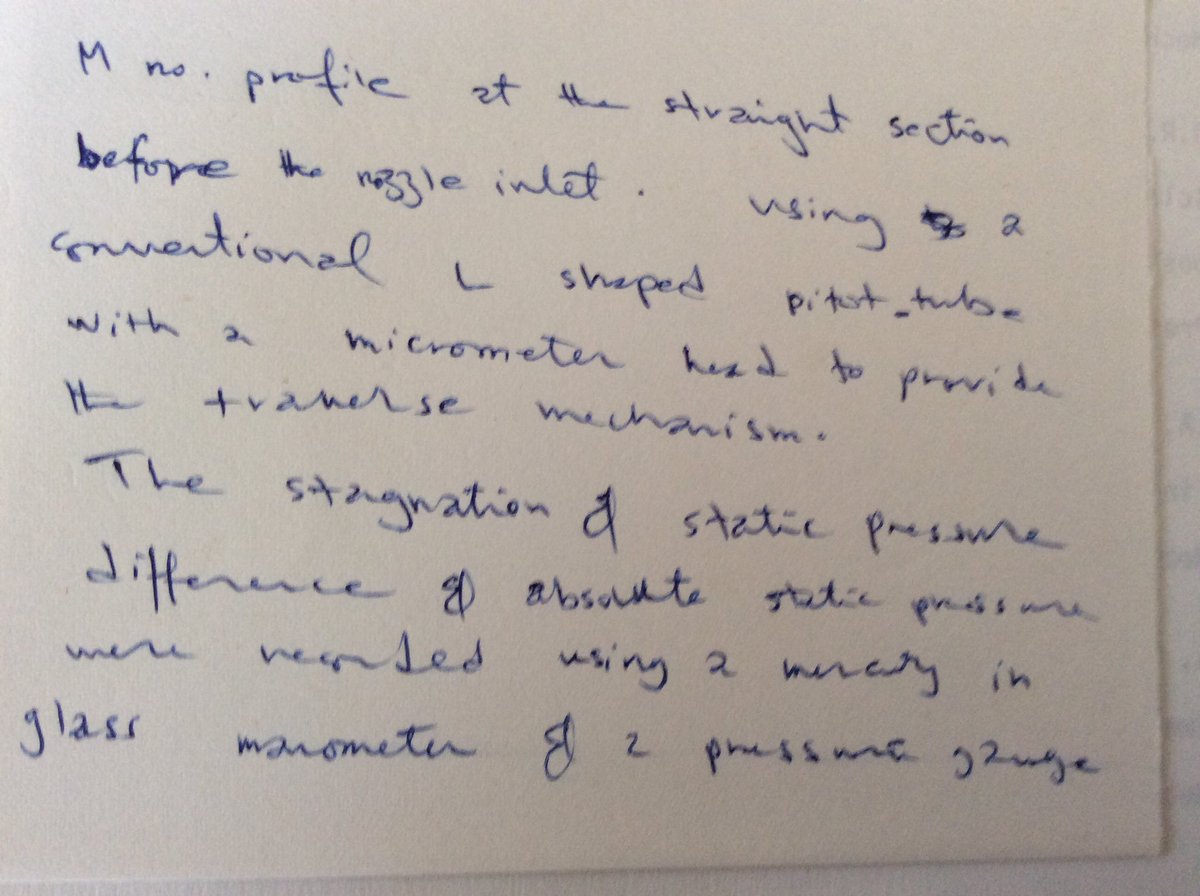 M no. profile at the straight section
before the nozzle inlet. using a
conventional L shaped pitot-tube
with a micrometer head to provide
the traverse mechanism.
The stagnation & static pressure
difference & absolute static pressure
were recorded using a mercury in
glass manometer & a pressure gauge